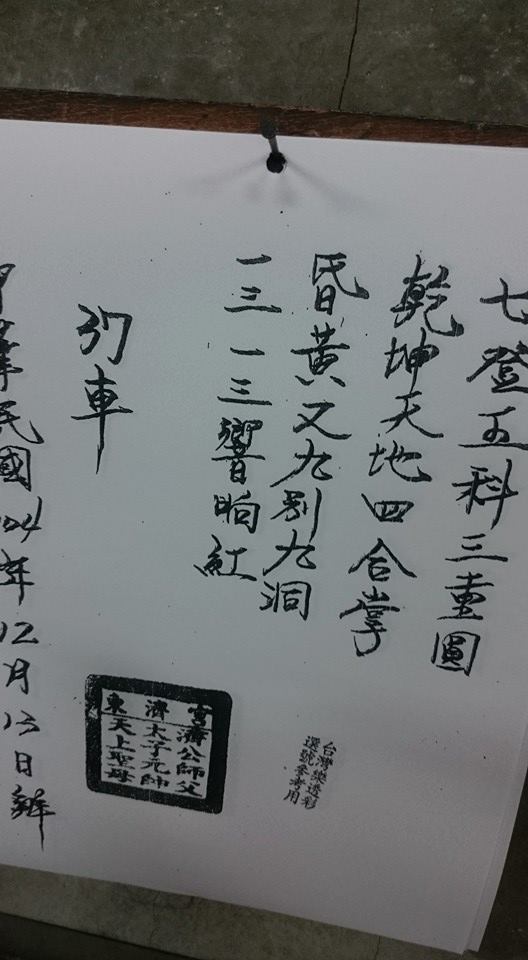 七登五科三重圓
乾坤天地四合掌
昏黃又九別九洞
一三一三響晌紅
列車
民國104年12月13日辦
宮濟東
濟公師父
太子元師
天上聖母
台灣樂透彩
選號參考用